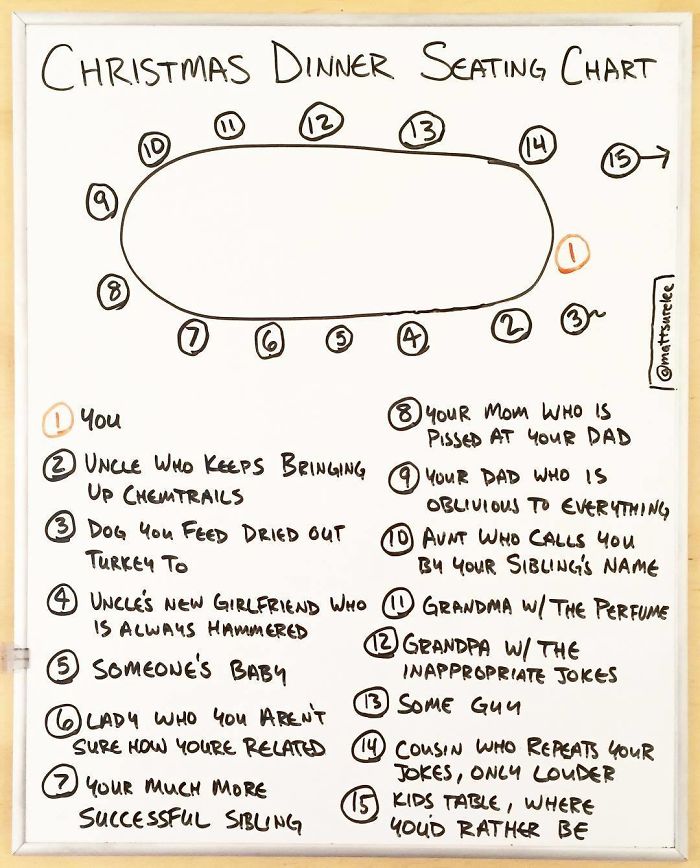 CHRISTMAS DINNER SEATING CHART
10 11 12 13 14 15
9
1
8
7 6 5 4 2 3
@mattsurelee
1 YOU
2 UNCLE WHO KEEPS BRINGING
UP CHEMTRAILS
3 DOG YOU FEED DRIED OUT
TURKEY TO
4 UNCLE'S NEW GIRLFRIEND WHO
IS ALWAYS HAMMERED
5 SOMEONE'S BABY
6 LADY WHO YOU AREN'T
SURE HOW YOURE RELATED
7 YOUR MUCH MORE
SUCCESSFUL SIBLING
8 YOUR MOM WHO IS
PISSED AT YOUR DAD
9 YOUR DAD WHO IS
OBLIVIOUS TO EVERYTHING
10 AUNT WHO CALLS YOU
BY YOUR SIBLING'S NAME
11 GRANDMA W/ THE PERFUME
12 GRANDPA W/ THE
INAPPROPRIATE JOKES
13 SOME GUY
14 COUSIN WHO REPEATS YOUR
JOKES, ONLY LOUDER
15 KIDS TABLE, WHERE
YOU'D RATHER BE